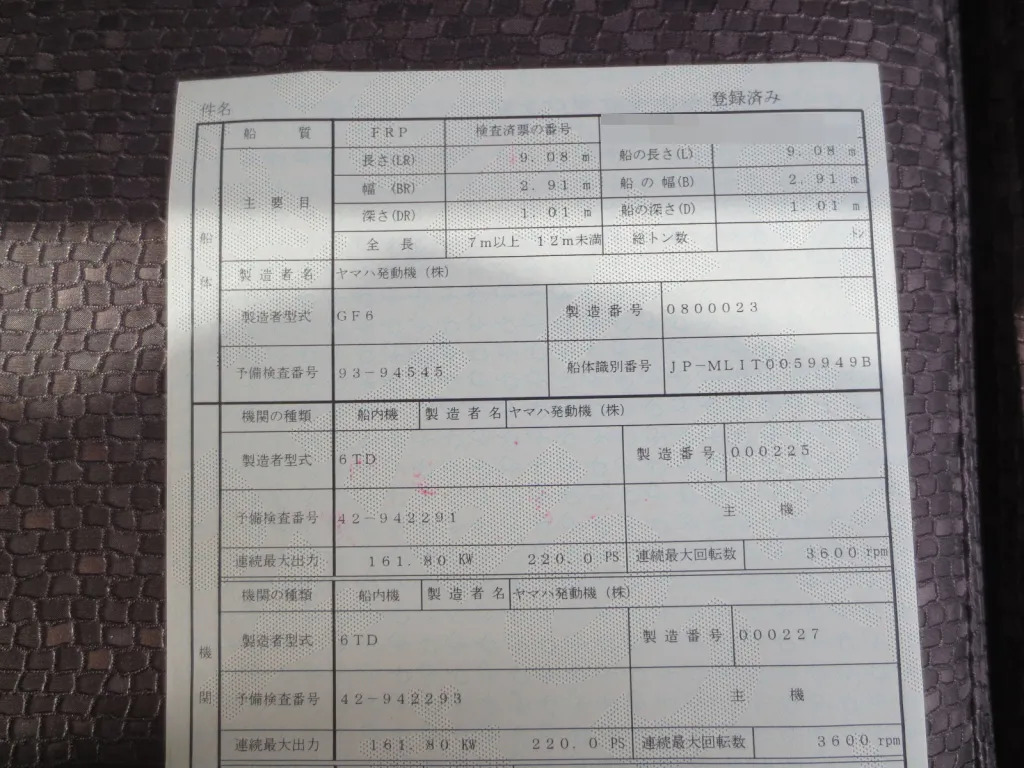 件名 登録済み
船質 FRP 検査済票の番号
長さ(LR) 9.08 m 船の長さ(L) 9.08 m
主要目 幅 (BR) 2.91 m 船の幅(B) 2.91 m
深さ(DR) 1.01 m 船の深さ(D) 1.01 m
全長 7m以上 12m未満 総トン数 トン
船体
製造者名 ヤマハ発動機(株)
製造者型式 GF6 製造番号 0800023
予備検査番号 93-94545 船体識別番号 JP-MLIT0059949B
機関の種類 船内機 製造者名 ヤマハ発動機(株)
製造者型式 6TD 製造番号 000225
予備検査番号 42-942291 主機
連続最大出力 161.80 KW 220.0 PS 連続最大回転数 3600 rpm
機関の種類 船内機 製造者名 ヤマハ発動機(株)
製造者型式 6TD 製造番号 000227
機関
予備検査番号 42-942293 主機
連続最大出力 161.80 KW 220.0 PS 連続最大回転数 3600 rpm